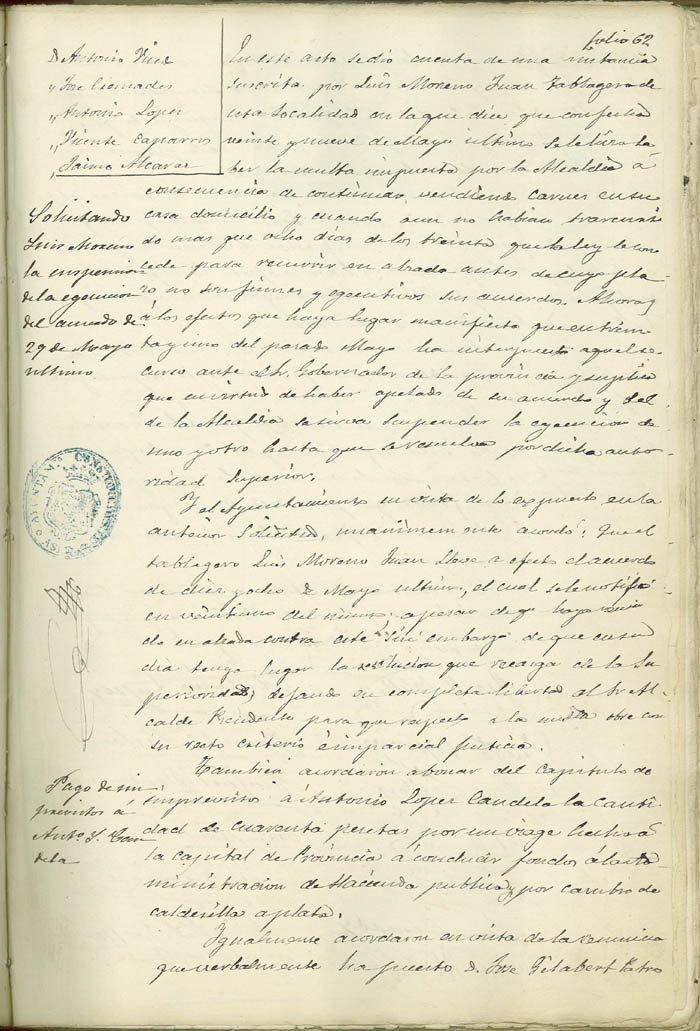 folio 62
D. Antonio
y Jose Cremades
„ Antonio Lopez
„ Vicente Caparros
„ Jaime Alcaraz
En este acto se dio cuenta de una instancia
suscrita por Luis Moreno Juan tablagero de
esta localidad en la que dice que con fecha
veinte y nueve de Mayo ultimo se le hizo sa-
ber la multa impuesta por la Alcaldia á
consecuencia de continuar vendiendo carnes en su
casa domicilio y cuando aun no habian trascurri-
do mas que ocho dias de los treinta que la ley le con-
cede para recurrir en alzada antes de cuyo pla-
zo no son firmes y egecutivos sus acuerdos. Ahora y
á los efectos que haya lugar manifiesta que en trein-
ta y uno del pasado Mayo ha interpuesto aquel re-
curso ante el Sr. Gobernador de la provincia y suplica
que en virtud de haber apelado de su acuerdo y del
de la Alcaldia se sirva suspender la egecucion de
uno y otro hasta que se resuelva por dicha auto-
ridad Superior.
Solicitando
Luis Moreno
la suspension
de la egecucion
del acuerdo de
29 de Mayo
ultimo
Y el Ayuntamiento en vista de lo espuesto en la
anterior Solicitud, unanimemente acordó: Que el
tablagero Luis Moreno Juan lleve a efecto el acuerdo
de diez y ocho de Mayo ultimo, el cual se le notificó
en veintiuno del mismo, apesar de q.e haya recurri-
do en alzada contra este y sin embargo de que en su
dia tenga lugar la resolucion que recaiga de la Su-
perioridad; dejando en completa libertad al Sr. Al-
calde Presidente para que respecto a la multa obre con
su recto criterio é imparcial justicia.
AYUNTAM.º CONSTITUCIONAL
Pago de im-
previstos á
Ant.º L. Can-
dela
Tambien acordaron abonar del Capitulo de
imprevistos á Antonio Lopez Candela la canti-
dad de cuarenta pesetas por un viage hecho á
la capital de Provincia á conducir fondos á la Ad-
ministracion de Hacienda publica y por cambio de
calderilla a plata.
Igualmente acordaron en vista de la renuncia
que verbalmente ha puesto D. Jose Gilabert